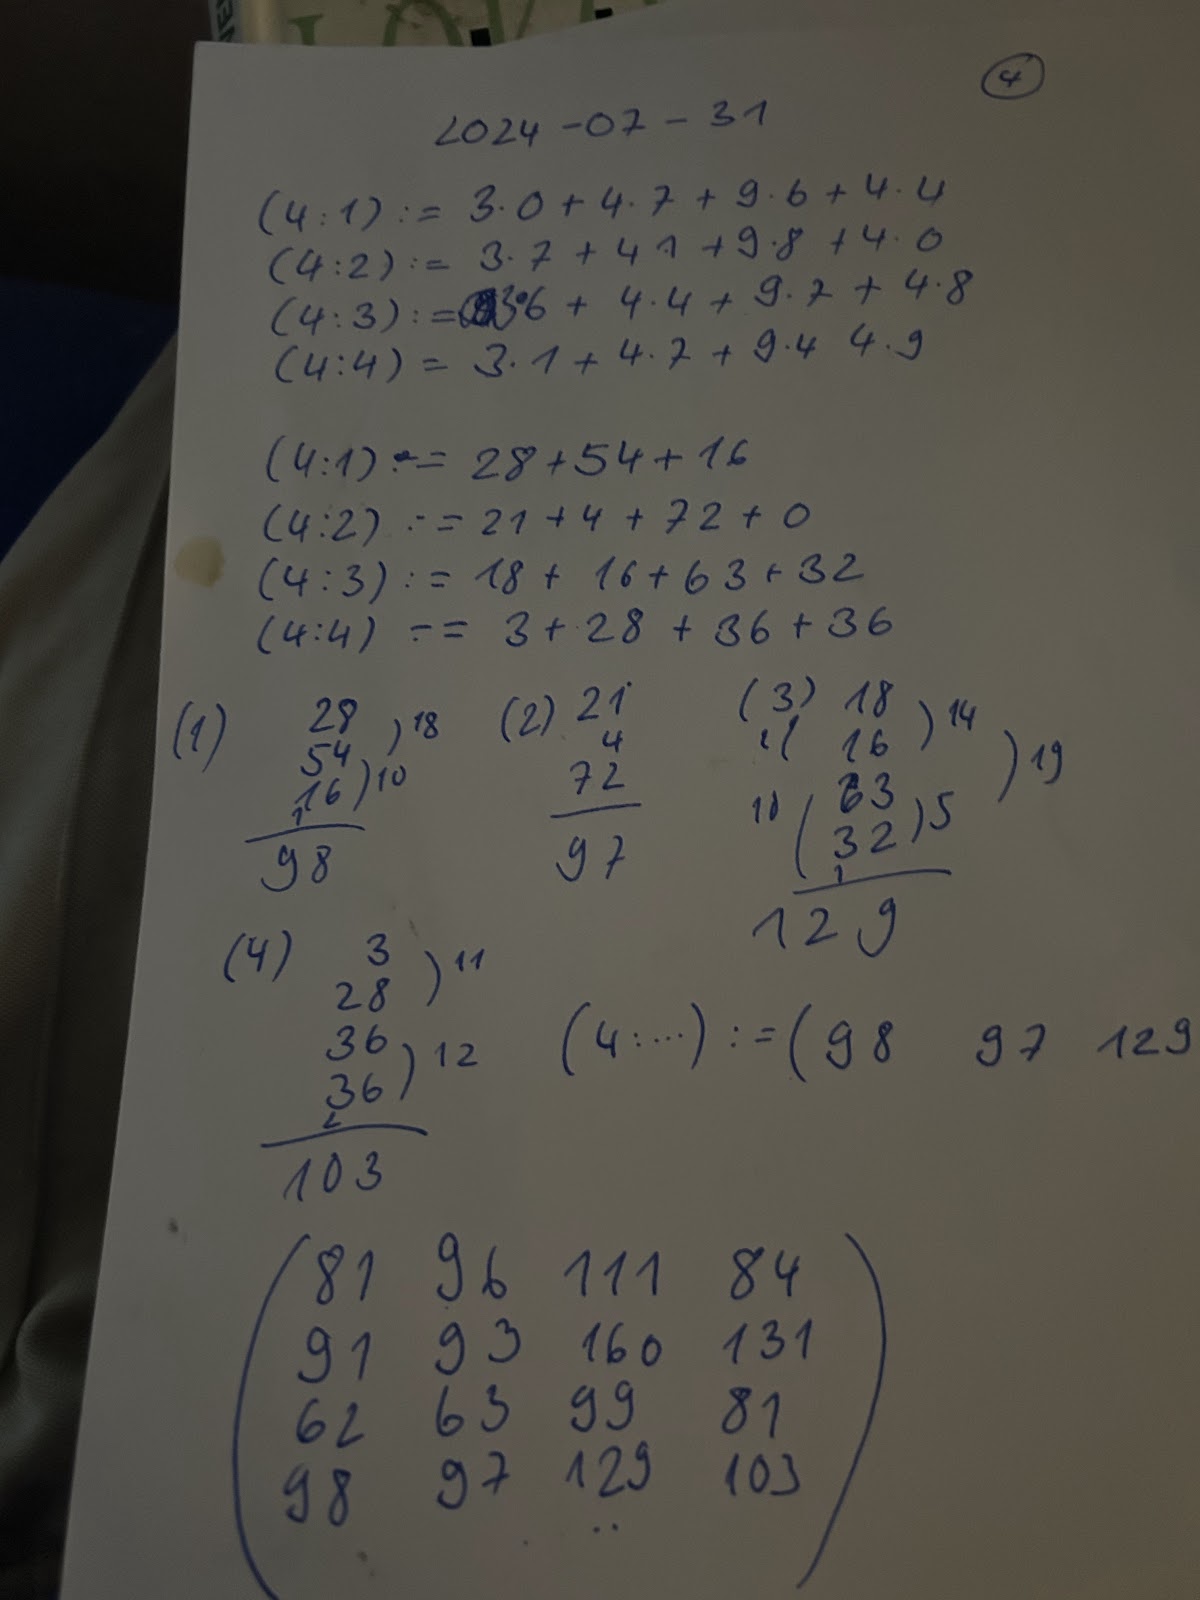 LOVE
4
2024-07-31
(4:1) := 3·0 + 4·7 + 9·6 + 4·4
(4:2) := 3·7 + 4 1 + 9·8 + 4·0
(4:3) := 3·6 + 4·4 + 9·7 + 4·8
(4:4) = 3·1 + 4·7 + 9·4 4·9
(4:1) := 28+54+16
(4:2) := 21+4+72+0
(4:3) := 18+ 16+63+32
(4:4) := 3+28+36+36
(1) 28 )18
54
16 )10
1
98
(2) 21
4
72
97
(3) 18 )14
16 )19
10 ( 63
32 )5
1
129
(4) 3
28 )11
36
36 )12
2
103
(4:...) := (98 97 129
81 96 111 84
91 93 160 131
62 63 99 81
98 97 129 103